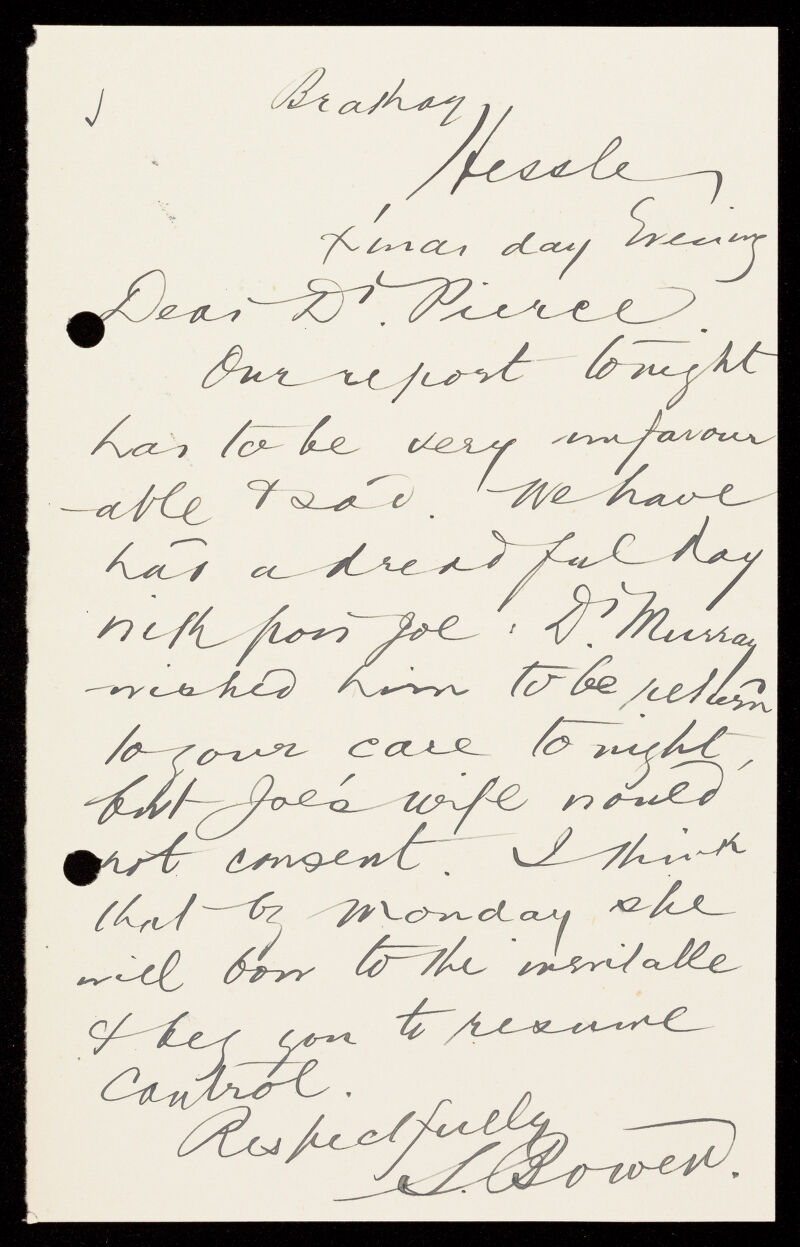 Brathay
Hessle
X'mas day Evening
Dear Dr. Pierce.
Our report tonight
has to be very unfavour
able & sad. We have
had a dreadful day
with poor Joe. Dr. Murray
wished him to be return
to your care tonight,
but Joe's wife would
not consent. I think
that by Monday she
will bow to the inevitable
& beg you to resume
control.
Respectfully
S. Bowen.